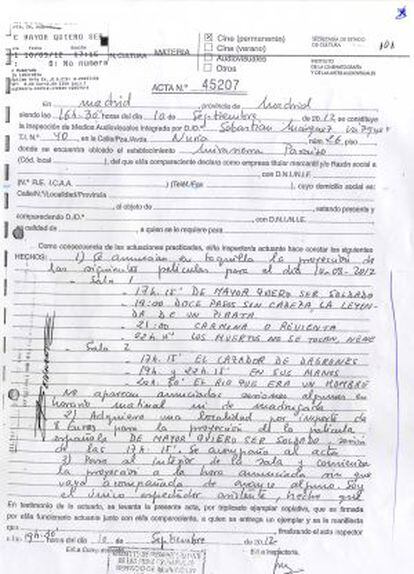 E MAYOR QUIERO SE
10/09/12 17:15
CULTURA
MATERIA
Cine (permanente)
Cine (verano)
Audiovisuales
Otros
SECRETARÍA DE ESTADO
DE CULTURA
101
INSTITUTO
DE LA CINEMATOGRAFÍA
Y DE LAS ARTES AUDIOVISUALES
ACTA N.º 45207
En madrid provincia de Madrid
siendo las 16h.30 horas del día 10 de Septiembre de 2012, se constituye
la Inspección de Medios Audiovisuales integrada por D./D.ª Sebastián
T.I. N.º 40, en la Calle/Pza./Avda. núm. 26 piso
donde se encuentra ubicado el establecimiento
(Cód. local ), del que el/la compareciente declara como empresa titular mercantil y/o Razón social a
con D.N.I./N.I.F.
(N.º R.E. I.C.A.A. ) (Teléf./Fax ), cuyo domicilio social es:
Calle/N.º/Localidad/Provincia
al objeto de , estando presente y
compareciendo D./D.ª , con D.N.I./N.I.E.
en calidad de , a quien se le requiere para
Como consecuencia de las actuaciones practicadas, el/la inspector/a actuante hace constar los siguientes
HECHOS: 1) Se anuncian en taquilla la proyección de
las siguientes películas para el día 10-09-2012
- Sala 1
- 17h.15' DE MAYOR QUIERO SER SOLDADO
- 19:00 DOCE PASOS SIN CABEZA, LA LEYEN-
DA DE UN PIRATA
- 21:00 CARMINA O REVIENTA
- LOS MUERTOS NO SE TOCAN, NENE
- Sala 2
- 17h.15' EL CAZADOR DE DRAGONES
- 19h y 22h15' EN SUS MANOS
- 20h.30' EL RIO QUE ERA UN HOMBRE
No aparecen anunciadas sesiones algunas en
horario matinal ni de madrugada
2) Adquiero una localidad por importe de
8 Euros para la proyección de la película
española DE MAYOR QUIERO SER SOLDADO sesión
de las 17h.15'. Se acompaña al acta
3) Paso al interior de la sala y comienza
la proyección a la hora anunciada sin que
vaya acompañada de avance alguno. Soy
el único espectador asistente, hecho que
En testimonio de lo actuado, se levanta la presente acta, por triplicado ejemplar copiativo, que es firmada
por el/la funcionario actuante junto con el/la compareciente, a quien se entrega un ejemplar y se la manifiesta
que finalizando el acto inspector
a las 19h.30' del día 10 de Septiembre de 2012
El/La Compareciente, El/La Inspector/a,